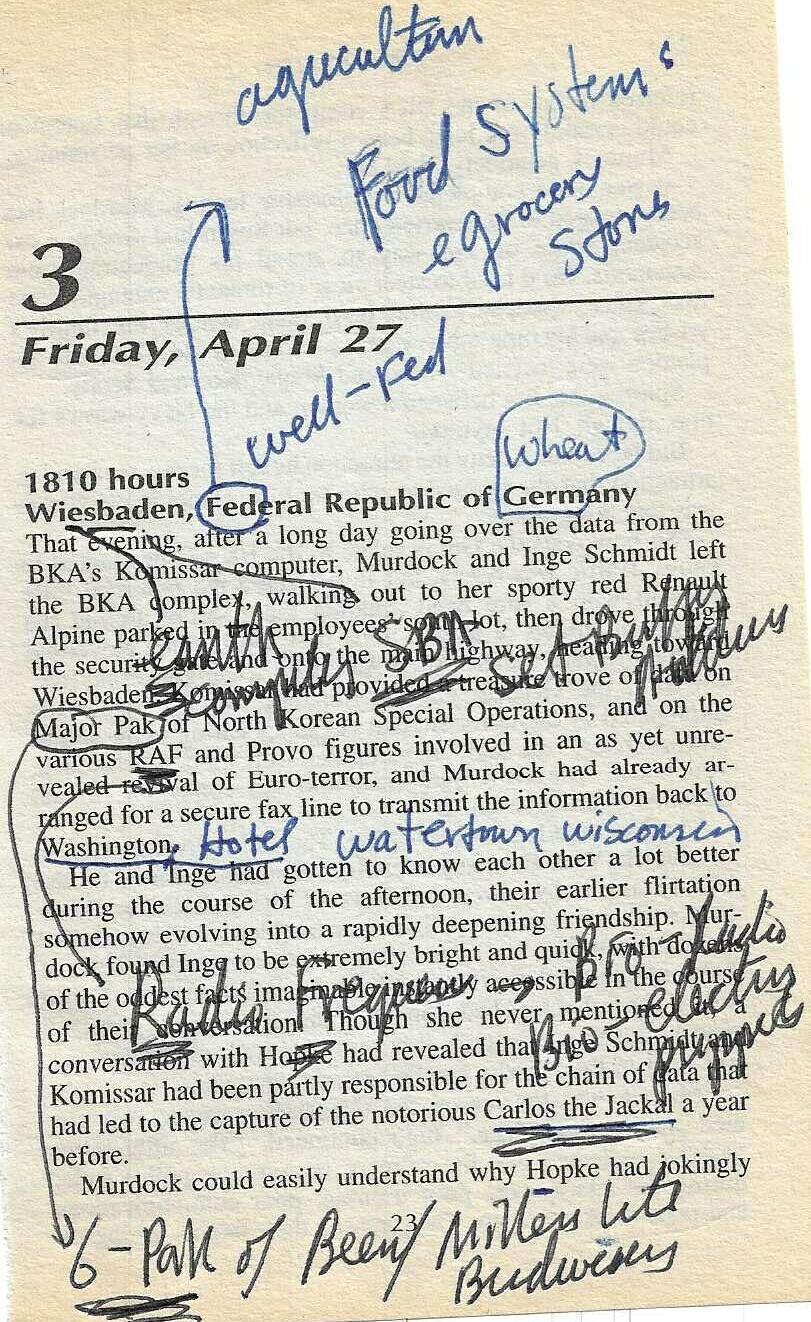 agriculture
Food Systems
grocery
Stores
3
Friday, April 27
well-Fed
wheat
1810 hours
Wiesbaden, Federal Republic of Germany
That evening, after a long day going over the data from the
BKA's Komissar computer, Murdock and Inge Schmidt left
the BKA complex, walking out to her sporty red Renault
Alpine parked in the employees' south lot, then drove through
earth SBA Set
the security gate and onto the main highway, heading toward
Wiesbaden. Komissar had provided a treasure trove of data on
Major Pak of North Korean Special Operations, and on the
various RAF and Provo figures involved in an as yet unre-
vealed revival of Euro-terror, and Murdock had already ar-
ranged for a secure fax line to transmit the information back to
Washington. Hotel watertown wisconsin
He and Inge had gotten to know each other a lot better
during the course of the afternoon, their earlier flirtation
somehow evolving into a rapidly deepening friendship. Mur-
dock found Inge to be extremely bright and quick, with dozens
of the oddest facts imaginable instantly accessible in the course
Radio Frequency Bio-Radio
of their conversation. Though she never mentioned it, a
Bio-electric
puppets
conversation with Hopke had revealed that Inge Schmidt and
Komissar had been partly responsible for the chain of data that
had led to the capture of the notorious Carlos the Jackal a year
before.
Murdock could easily understand why Hopke had jokingly
23
6-Pak of Beer/Millers Lite
Budweisers